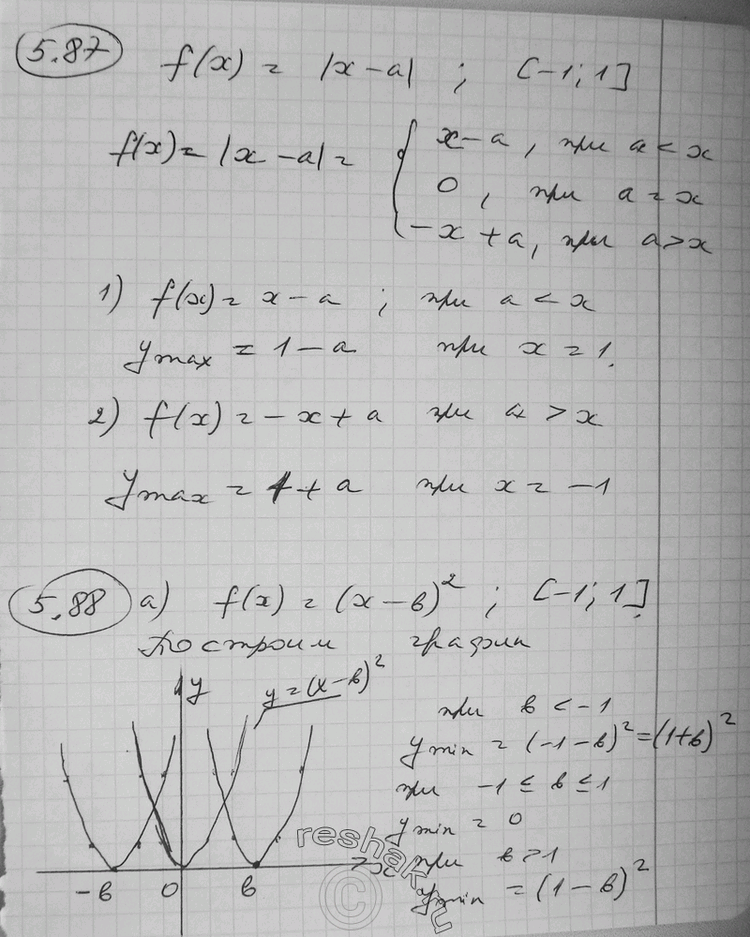 5.87 f(x) = |x-a| ; [-1; 1]
f(x) = |x-a| = { x-a, при a < x
0, при a = x
-x+a, при a > x
1) f(x) = x-a ; при a < x
y max = 1-a при x = 1.
2) f(x) = -x+a при a > x
y max = 1+a при x = -1
5.88 a) f(x) = (x-в)² ; [-1; 1]
Построим график
y
y = (x-в)²
-в 0 в x
при в < -1
y min = (-1-в)² = (1+в)²
при -1 ≤ в ≤ 1
y min = 0
при в > 1
y min = (1-в)²
reshak.ru
©